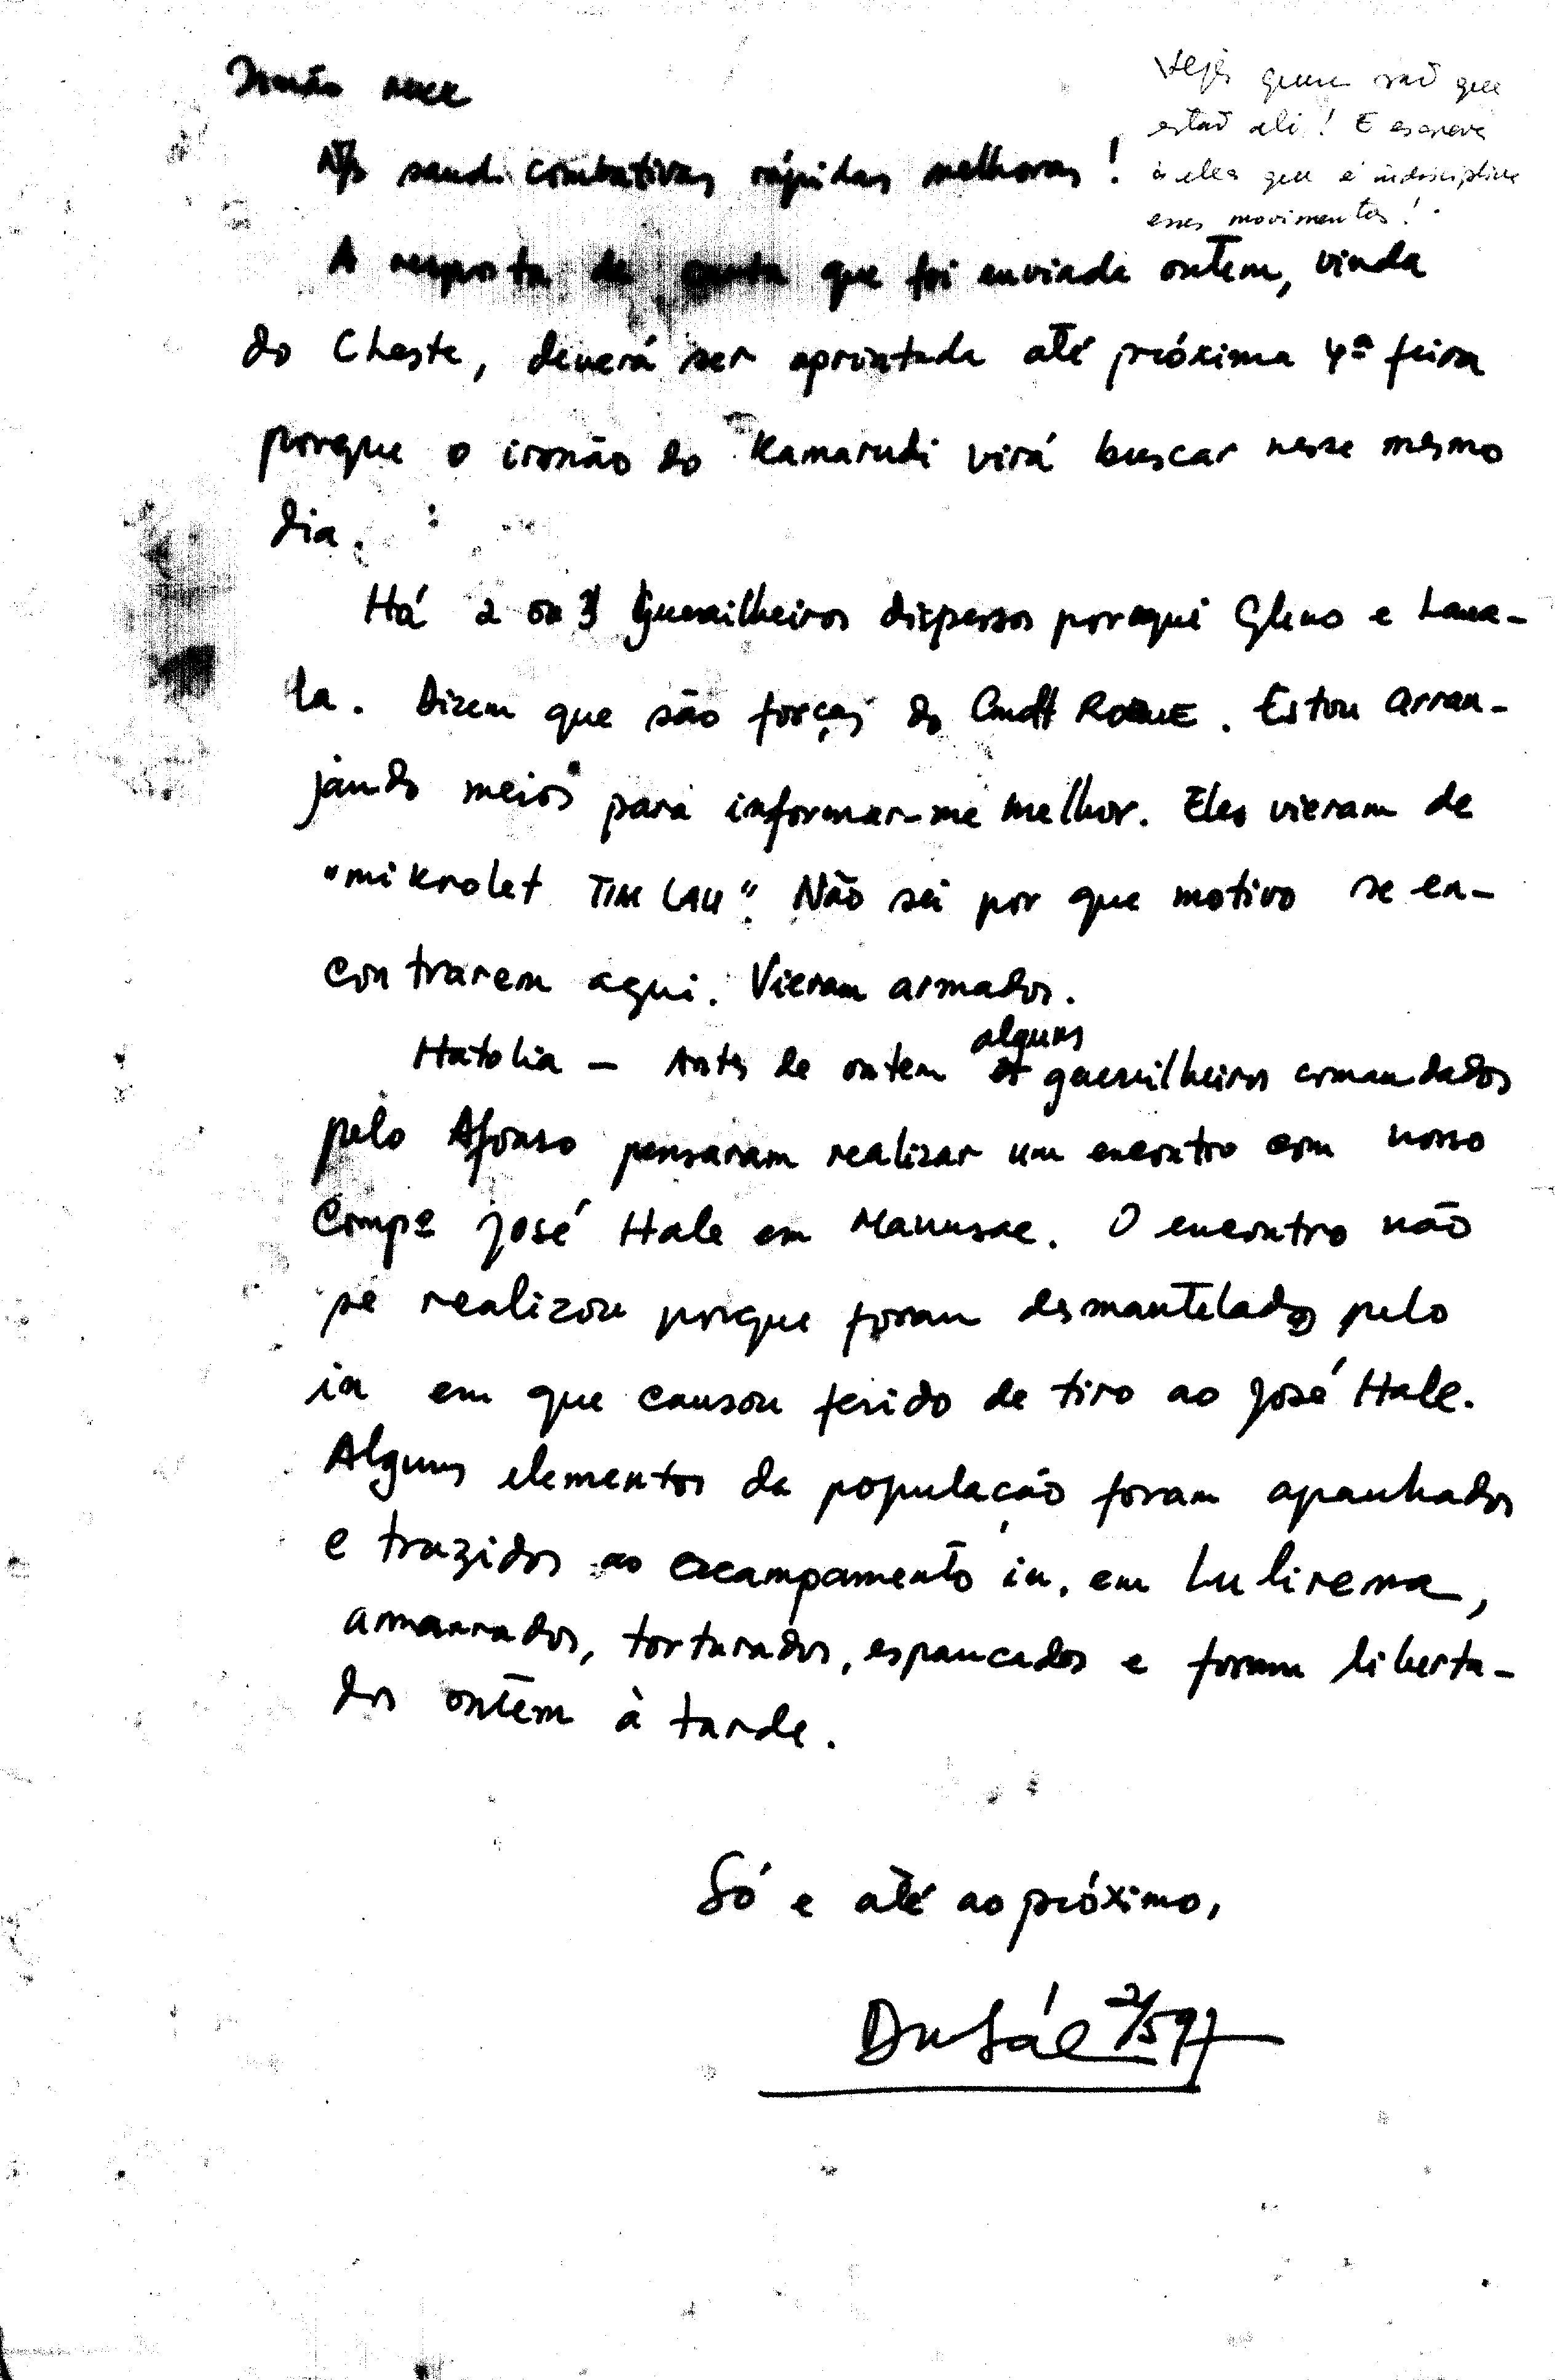 Irmão
saud. combativas rápidas melhoras!
Veja quem são que
estão ali! E escreva
a eles que é indisciplina
esses movimentos!
A resposta da carta que foi enviada ontem, vinda
do Cheste, deverá ser aprontada até próxima 4ª feira
porque o irmão do Kamarudi virá buscar nesse mesmo
dia.
Há 2 ou 3 guerrilheiros dispersos por aqui Gleno e Laua-
la. Dizem que são forças do Cmdt ROQUE. Estou arran-
jando meios para informar-me melhor. Eles vieram de
"mikrolet TIM LAU". Não sei por que motivo se en-
contrarem aqui. Vieram armados.
Hatolia - Antes de ontem alguns guerrilheiros comandados
pelo Afonso pensaram realizar um encontro com nosso
Compº José Hale em Manusae. O encontro não
se realizou porque foram desmantelados pelo
in em que causou ferido de tiro ao José Hale.
Alguns elementos da população foram apanhados
e trazidos ao acampamento in. em Lulirema,
amarrados, torturados, espancados e foram liberta-
dos ontem à tarde.
Só e até ao próximo,
DuSáe 2/5 97